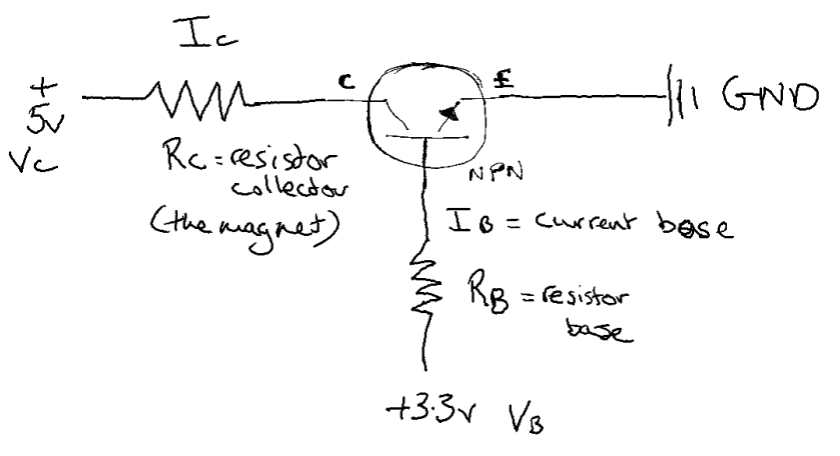 Ic
+
5v
Vc
C
E
GND
Rc = resistor
collector
(the magnet)
NPN
IB = current base
RB = resistor
base
+3.3v VB